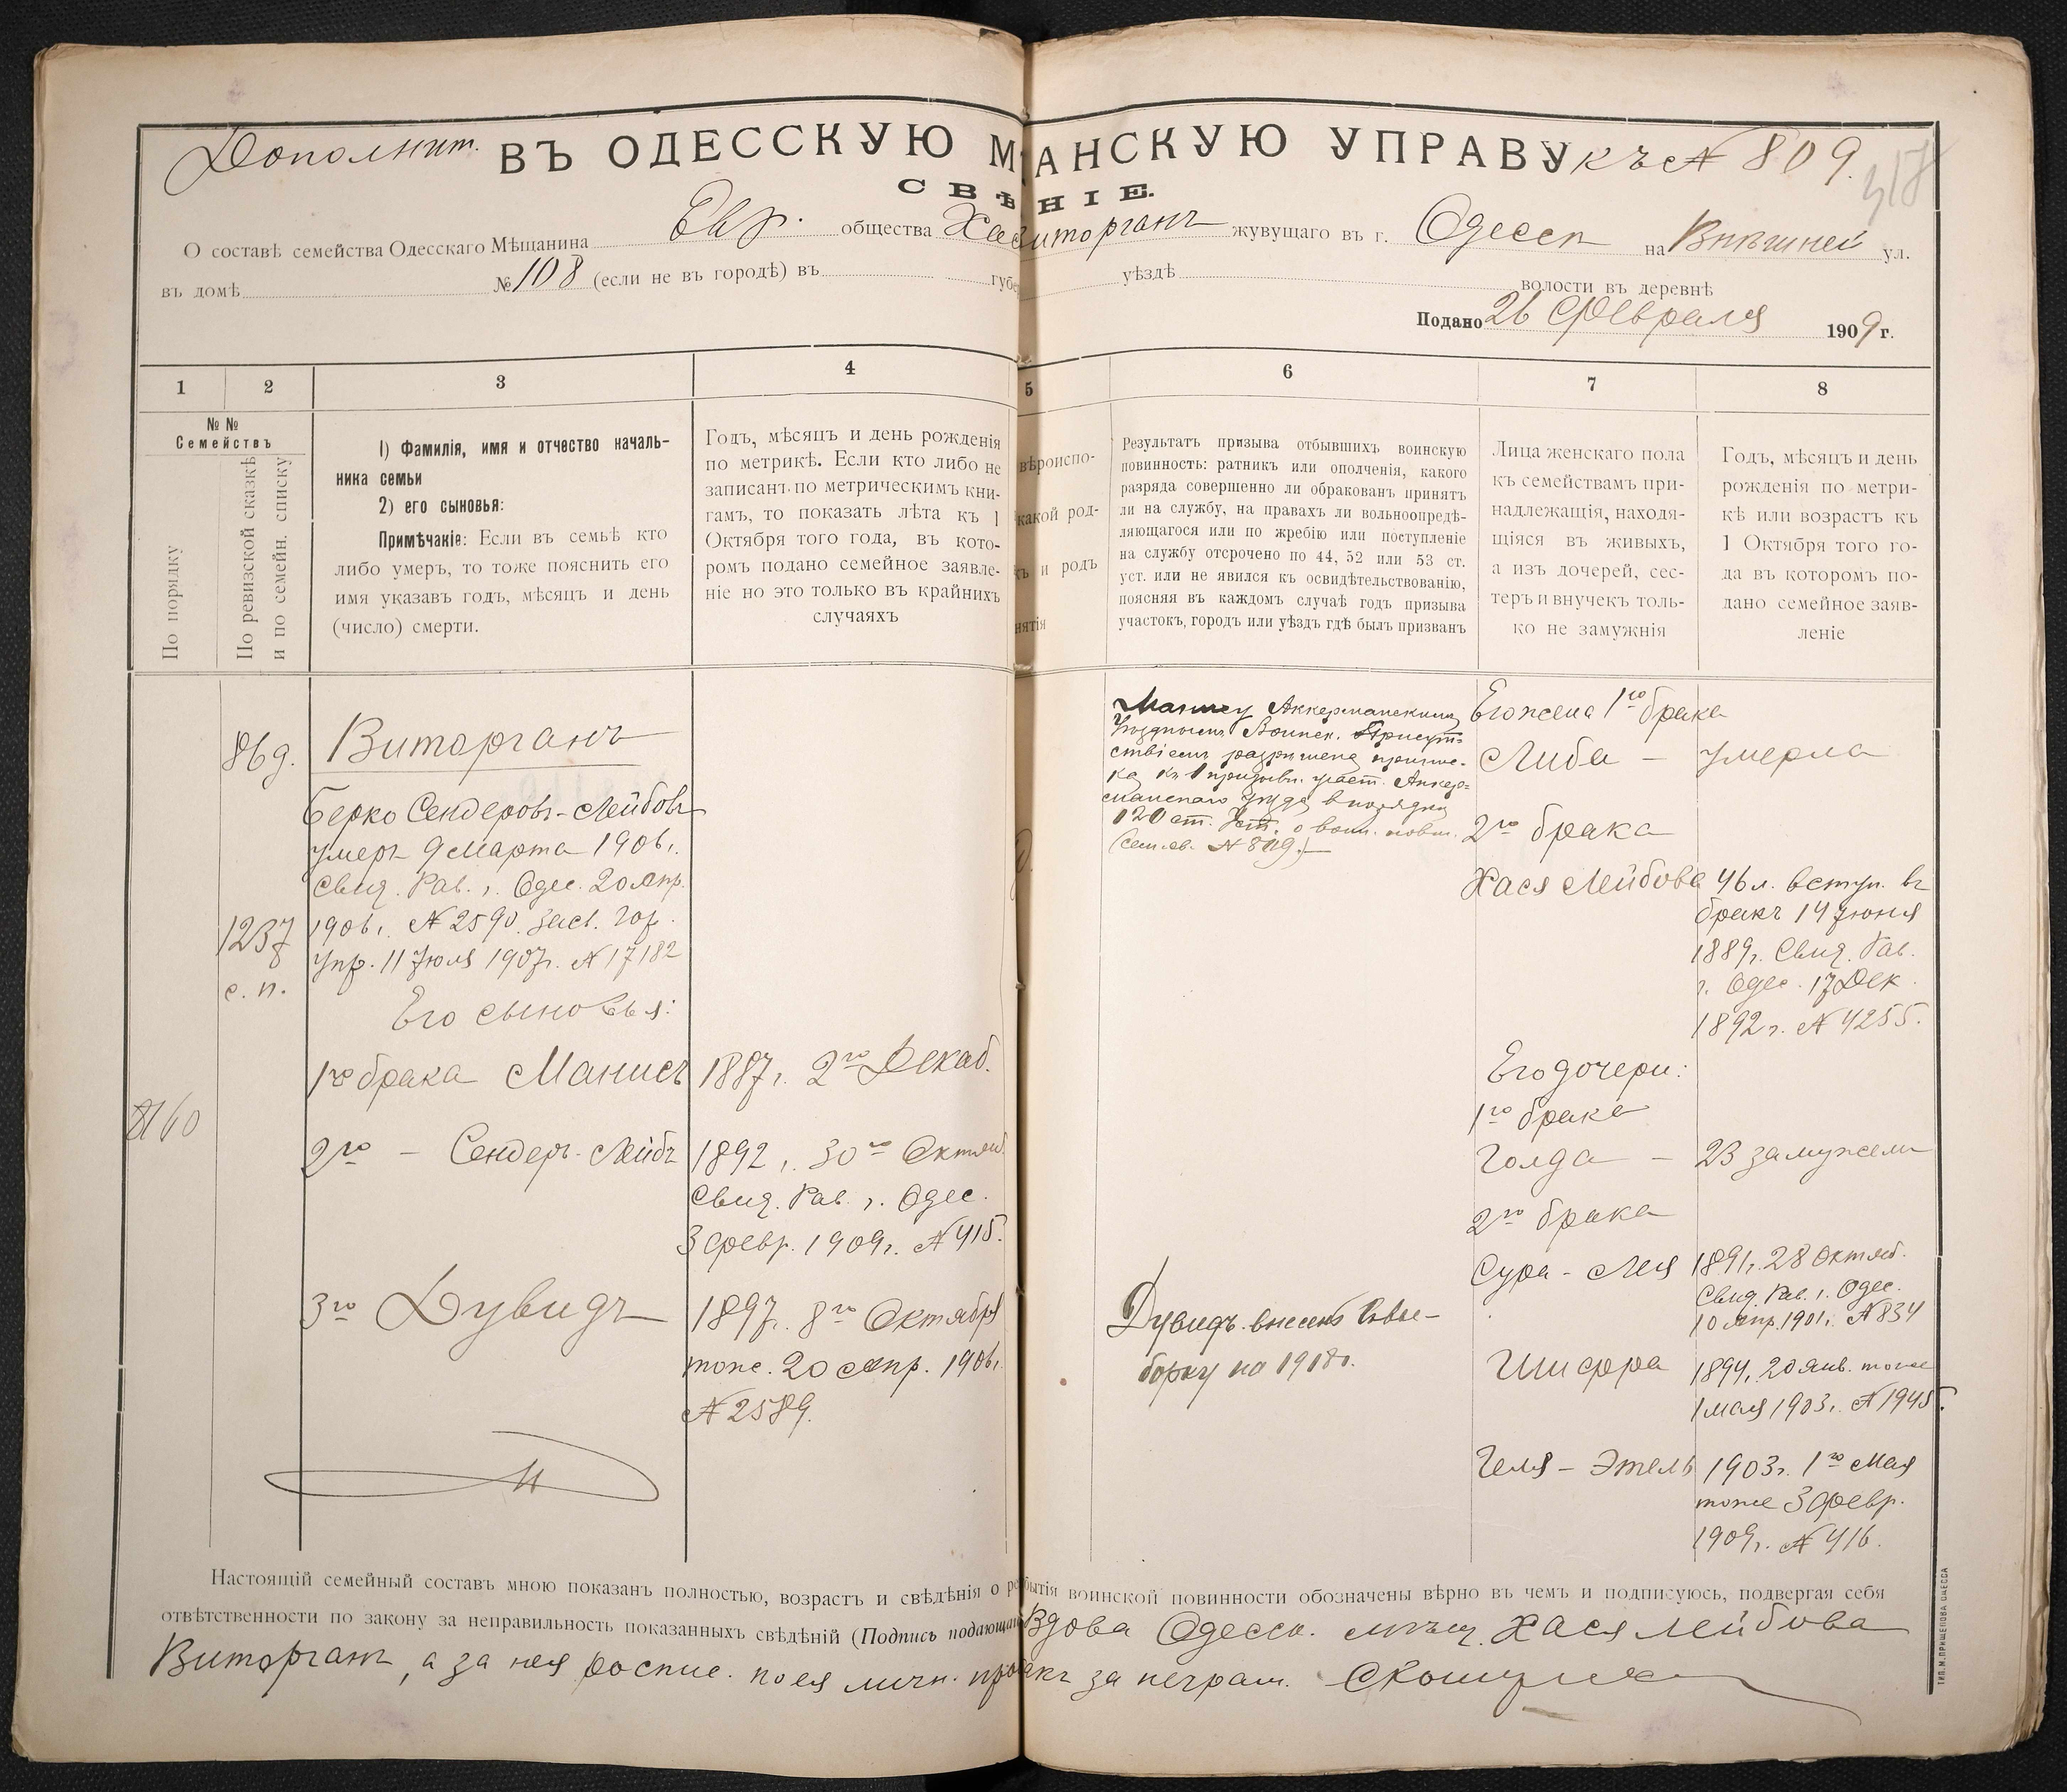 Дополнит. ВЪ ОДЕССКУЮ М АНСКУЮ УПРАВУ къ № 809.
318
СВѢ НІЕ.
О составѣ семейства Одесскаго Мѣщанина Евр. общества Хас Виторганъ жувущаго въ г. Одессѣ на Внѣшней ул.
въ домѣ № 108 (если не въ городѣ) въ губе уѣздѣ волости въ деревнѣ
Подано 26 Февраля 1909 г.
1 2 3 4 5 6 7 8
№№
Семействъ
По порядку
По ревизской сказкѣ
и по семейн. списку
1) Фамилія, имя и отчество началь-
ника семьи
2) его сыновья:
Примѣчакіе: Если въ семьѣ кто
либо умеръ, то тоже пояснить его
имя указавъ годъ, мѣсяцъ и день
(число) смерти.
Годъ, мѣсяцъ и день рожденія
по метрикѣ. Если кто либо не
записанъ по метрическимъ кни-
гамъ, то показать лѣта къ 1
Октября того года, въ кото-
ромъ подано семейное заявле-
ніе но это только въ крайнихъ
случаяхъ
вѣроиспо-
какой род-
къ и родъ
нятія
Результатъ призыва отбывшихъ воинскую
повинность: ратникъ или ополченія, какого
разряда совершенно ли обракованъ принятъ
ли на службу, на правахъ ли вольноопредѣ-
ляющагося или по жребію или поступленіе
на службу отсрочено по 44, 52 или 53 ст.
уст. или не явился къ освидѣтельствованію,
поясняя въ каждомъ случаѣ годъ призыва
участокъ, городъ или уѣздъ гдѣ былъ призванъ
Лица женскаго пола
къ семействамъ при-
надлежащія, находя-
щіяся въ живыхъ,
а изъ дочерей, сес-
теръ и внучекъ толь-
ко не замужнія
Годъ, мѣсяцъ и день
рожденія по метри-
кѣ или возрастъ къ
1 Октября того го-
да въ которомъ по-
дано семейное заяв-
леніе
869.
1237
с. п.
Виторганъ
Берко Сендеровъ-Лейбовъ
умеръ 9 Марта 1906г.
Свид. Рав. г. Одес. 20 Апр.
1906г. № 2590. Засв. Гор.
Упр. 11 Июля 1907г. № 17182
Его сыновья:
1го брака Манисъ 1887г. 2го Декаб.
2го - Сендеръ-Лейбъ 1892г. 30го Октяб.
Свид. Рав. г. Одес.
3 Февр. 1909г. № 415.
3го Дувидъ 1897г. 8го Октября
тоже. 20 Апр. 1906г.
№ 2589.
Аккерманскимъ
Уѣзднымъ Воинск. Присут-
ствіемъ разрѣшена припис-
ка къ 1 призывн. участ. Аккер-
манскаго уѣзда въ порядкѣ
120 ст. Уст. о воин. повин.
(Сем. св. № 809).
Дувидъ внесенъ въ вы-
борку на 1918г.
Его жена 1го брака
Либа - умерла
2го брака
Хася Лейбова 46 л. вступ. въ
бракъ 14 Июня
1889г. Свид. Рав.
г. Одес. 17 Дек.
1892г. № 4255.
Его дочери:
1го брака
Голда - 23 замужемъ
2го брака
Сура-Лея 1891г. 28 Октяб.
Свид. Рав. г. Одес.
10 Апр. 1901г. № 834
Шифра 1894г. 20 Янв. тоже
1 Мая 1903г. № 1945.
Геля-Этель 1903г. 1го Мая
тоже 3 Февр.
1909г. № 416.
Настоящій семейный составъ мною показанъ полностью, возрастъ и свѣдѣнія о р бытія воинской повинности обозначены вѣрно въ чемъ и подписуюсь, подвергая себя
отвѣтственности по закону за неправильность показанныхъ свѣдѣній (Подпись подающаго Вдова Одесск. мѣщ. Хася Лейбова
Виторганъ, а за нея роспис. по ея личн. просьбѣ за неграм.
ТИП. М. ПРИЩЕПОВА ОДЕССА